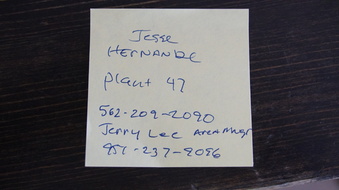 Jesse
HERNANDE
plant 47
562-209-2090
Jerry Lee Area Mngr
951-237-9096